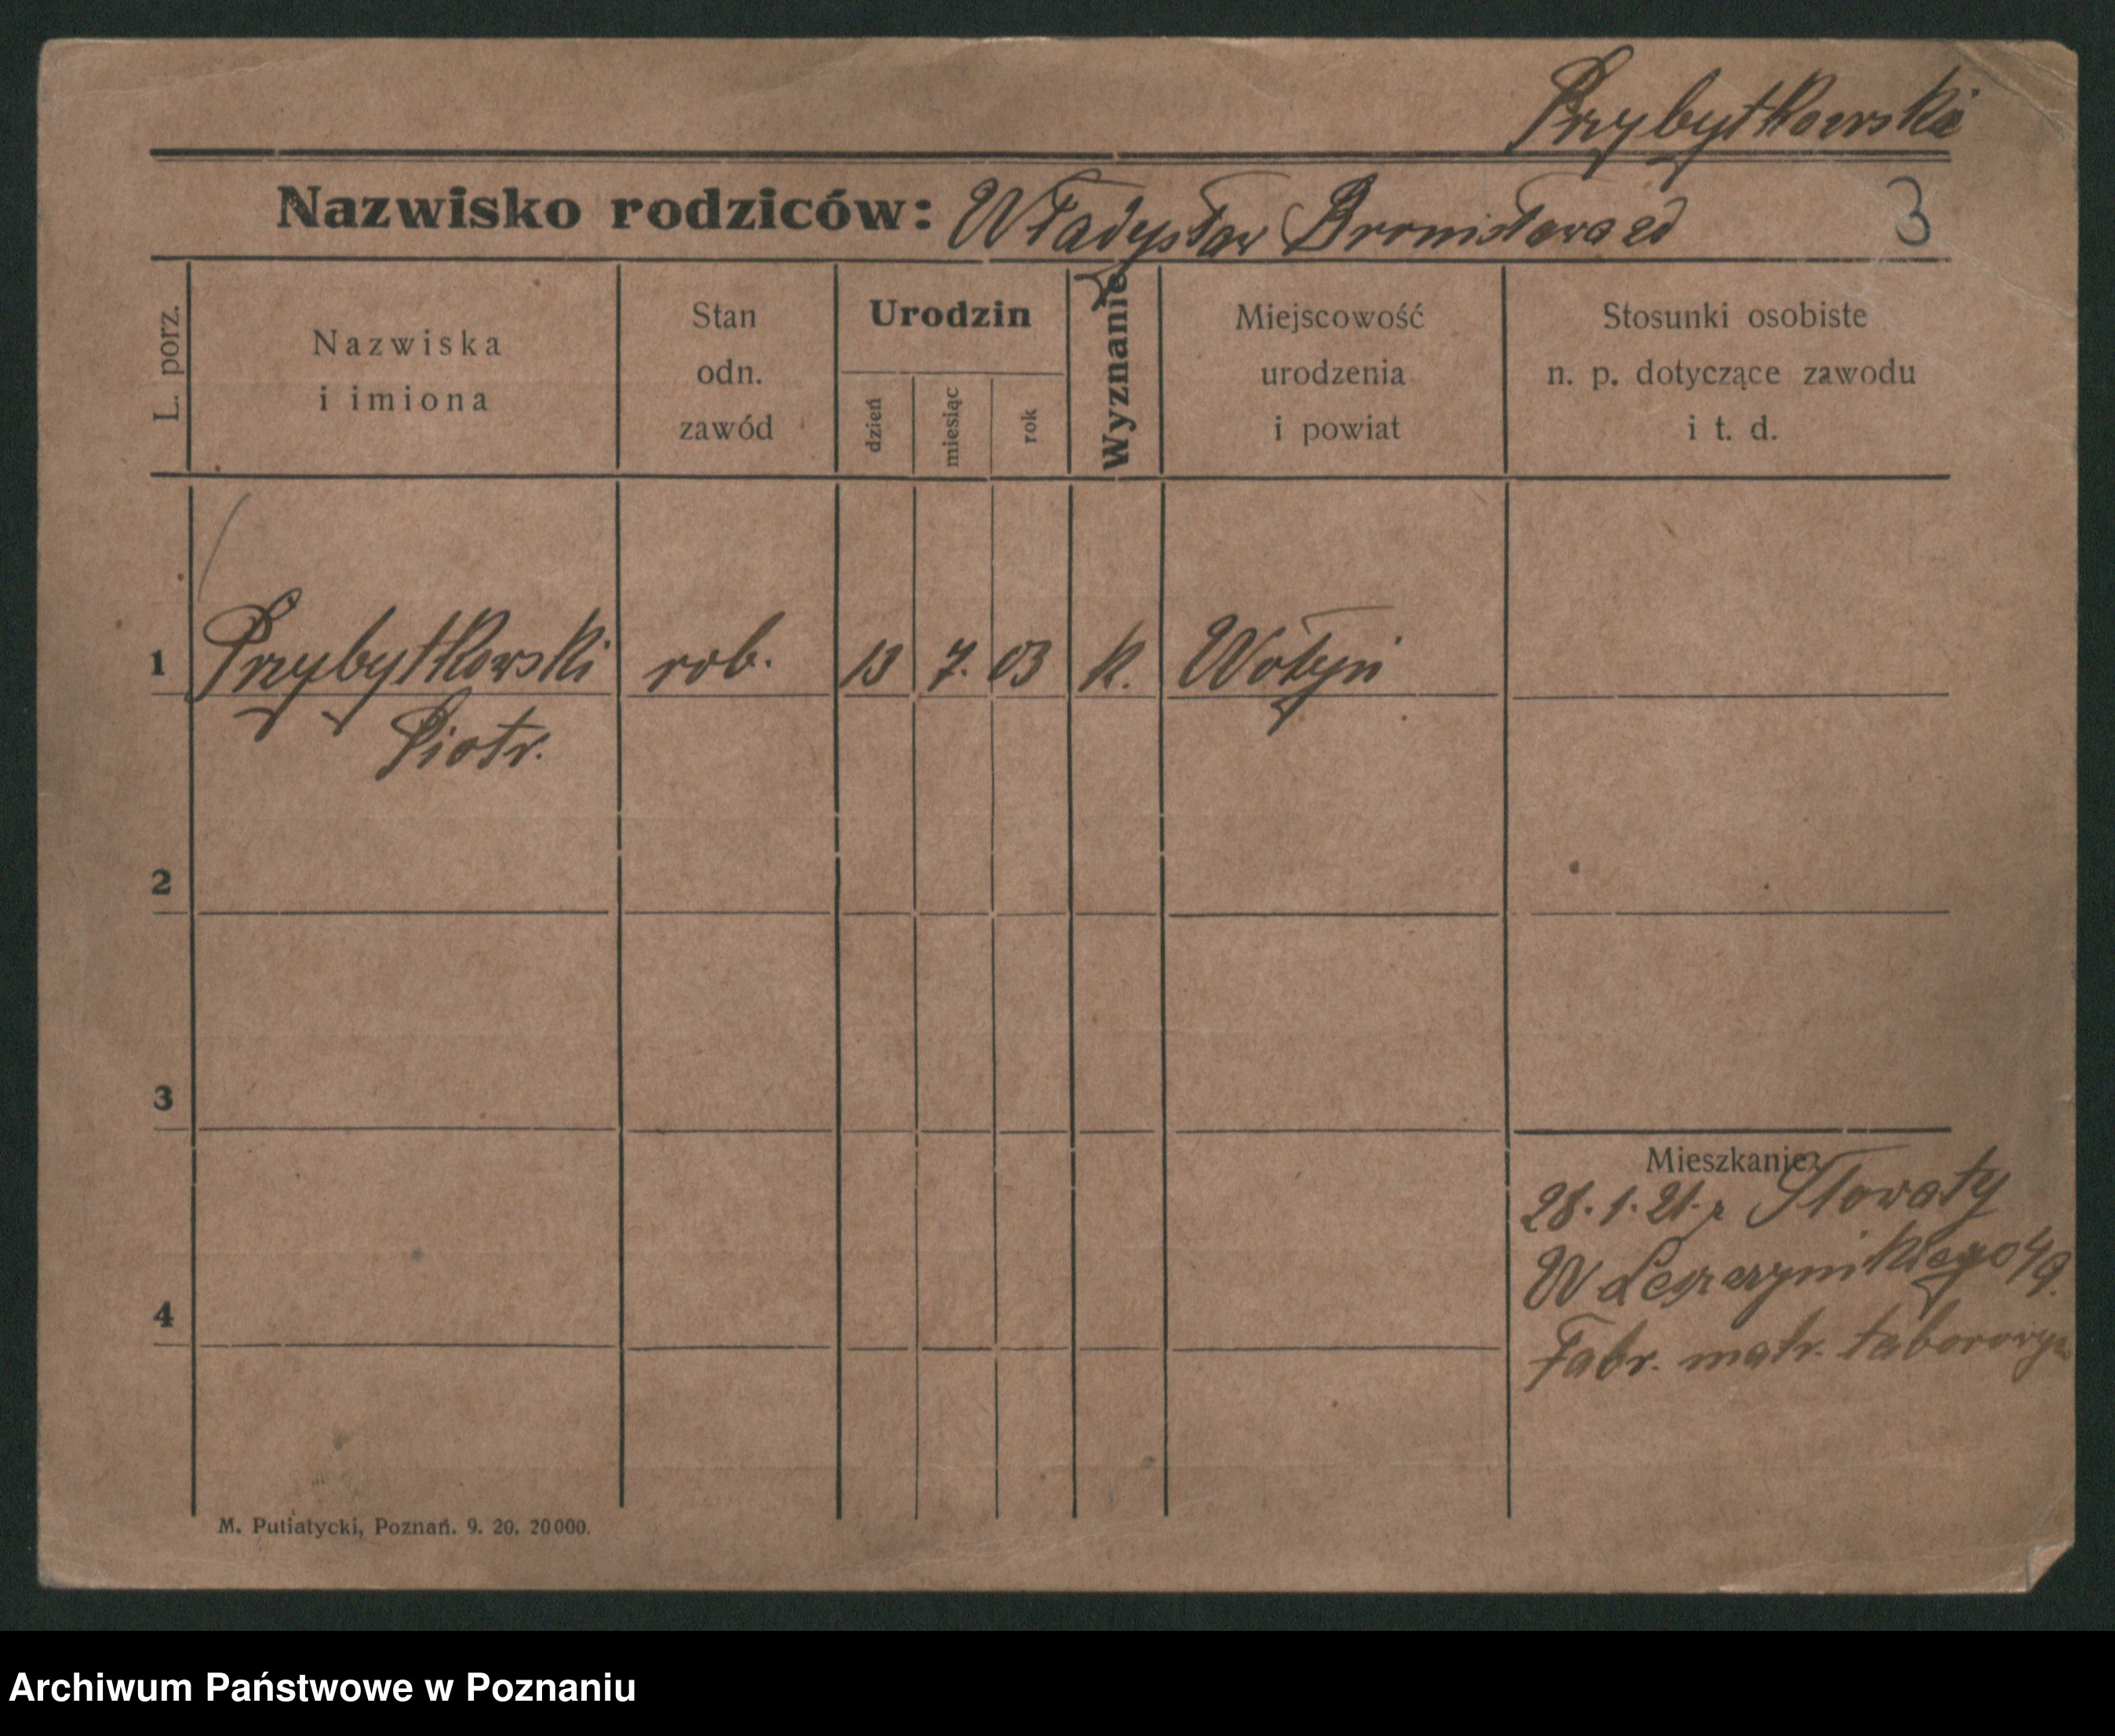 Przybytkowski
Nazwisko rodziców: Władysław Bronisława zd 3
L. porz.
Nazwiska
i imiona
Stan
odn.
zawód
Urodzin
dzień
miesiąc
rok
Wyznanie
Miejscowość
urodzenia
i powiat
Stosunki osobiste
n. p. dotyczące zawodu
i t. d.
1 Przybytkowski rob. 13 7. 03 K. Wołyń
Piotr.
2
3
4
Mieszkanie:
28.1.21. z
W Leszczyńskiego 49.
Fabr. matr. taborowych
M. Putiatycki, Poznań. 9. 20. 20000.
Archiwum Państwowe w Poznaniu